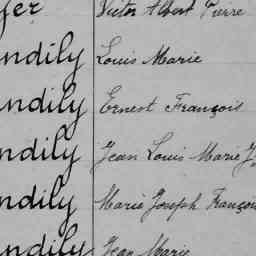 fer Victor Albert Pierre
ndily Louis Marie
ndily Ernest François
ndily Jean Louis Marie J
ndily Marie Joseph François
ndily Jean Marie